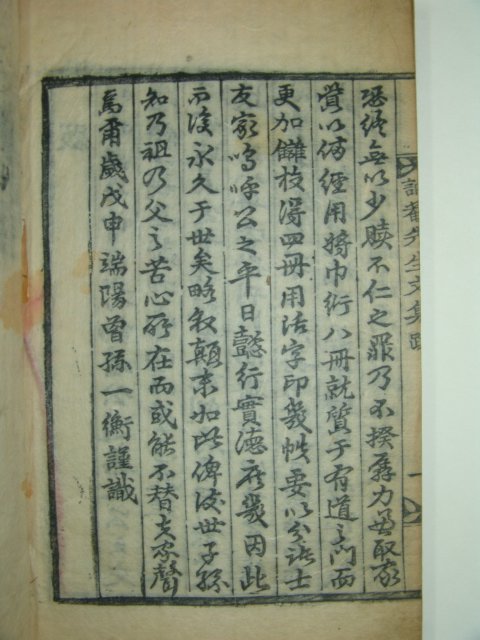 恐終無以少贖不仁之罪乃不揆孱力並取家
貲以備經用將巾衍八冊就質于有道之門而
更加讎校得四冊用活字印幾帙要以分諸士
友家嗚呼公之平日懿行實德庶幾因此
而後永久于世矣略叙顛末如此俾後世子孫
知乃祖乃父之苦心所在而或能不替夫家聲
焉爾歲戊申端陽曾孫一衡謹識
先生文集跋